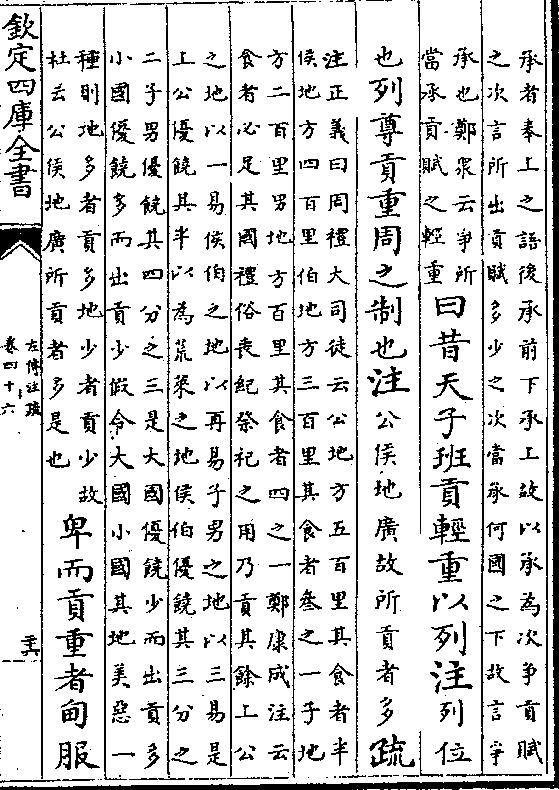 承者奉上之語後承前下承上故以承為次爭貢賦
之次言所出貢賦多少之次當承何國之下故言爭
承也鄭衆云爭所
當承貢賦之輕重
曰昔天子班貢輕重以列注列位
也列尊貢重周之制也注公侯地廣故所貢者多疏
注正義曰周禮大司徒云公地方五百里其食者半
侯地方四百里伯地方三百里其食者叅之一子地
方二百里男地方百里其食者四之一鄭康成注云
食者必足其國禮俗喪紀祭祀之用乃貢其餘上公
之地以一易侯伯之地以再易子男之地以三易是
上公優饒其半以為荒萊之地侯伯優饒其三分之
二子男優饒其四分之三是大國優饒少而出貢多
小國優饒多而出貢少假令大國小國其地美惡一
種則地多者貢多地少者貢少故
杜云公侯地廣所貢者多是也
卑而貢重者甸服
欽定四庫全書
左傳注疏
卷四十六